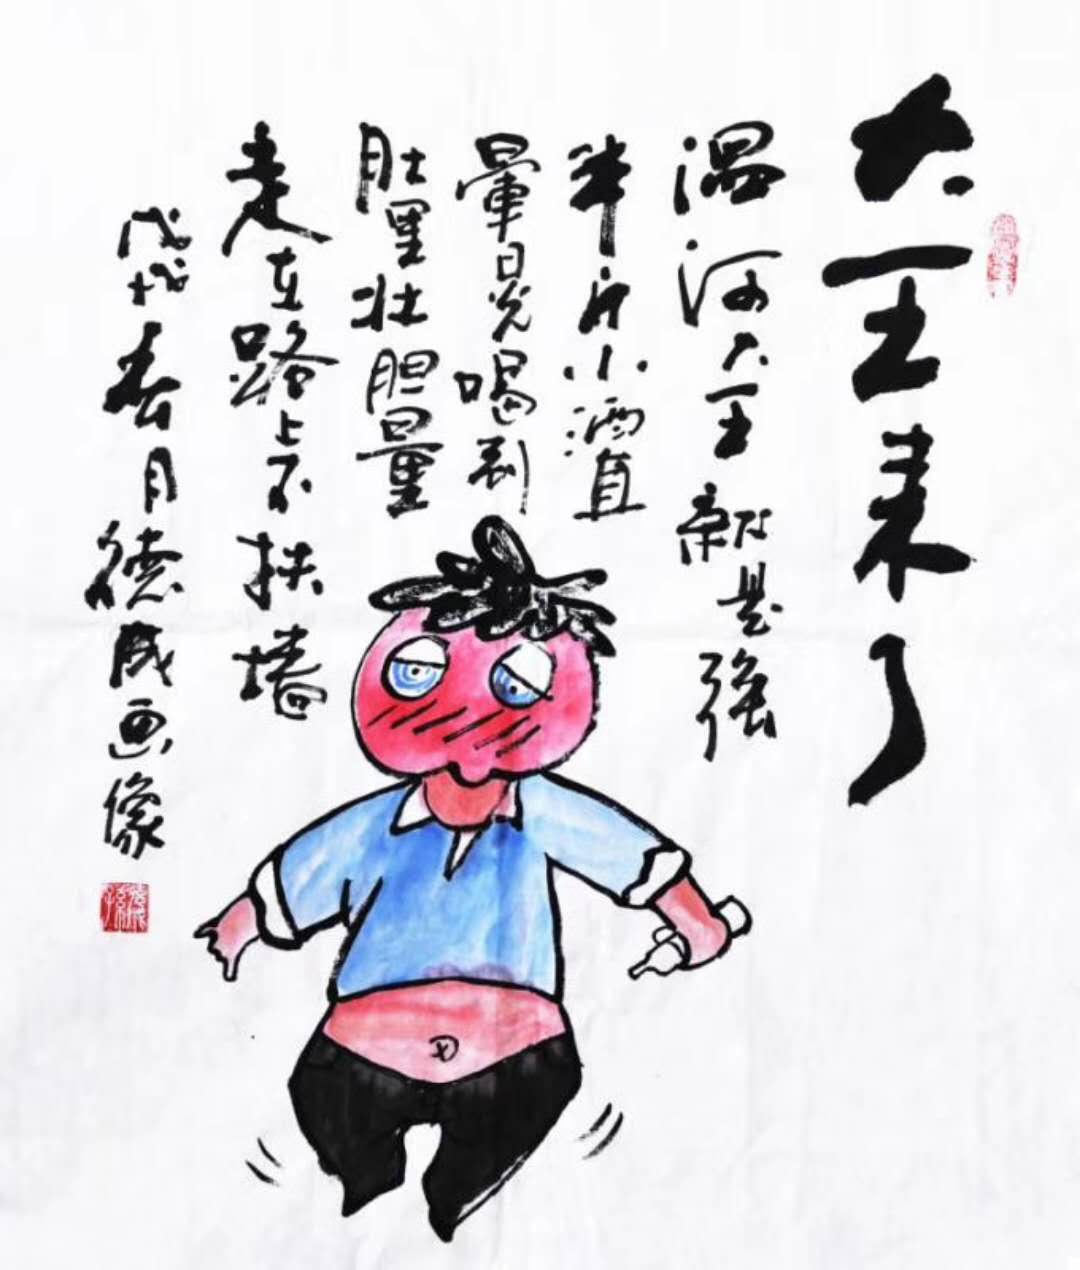 大王来了
温河大王就是强
半斤小酒直
晕晃喝到
肚里壮胆量
走在路上不扶墙
戊戌春月德成画像